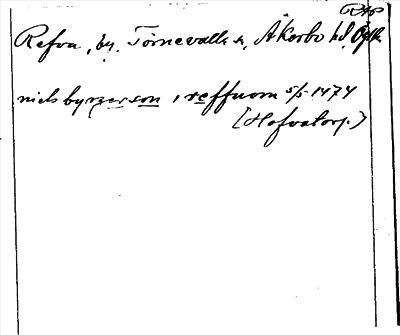 RAP
Refva, by, Törnevalla sn, Åkerbo hd, Ögtl.
niels byrgerson i reffwom 5/5 1474
(Hofvatorp.)